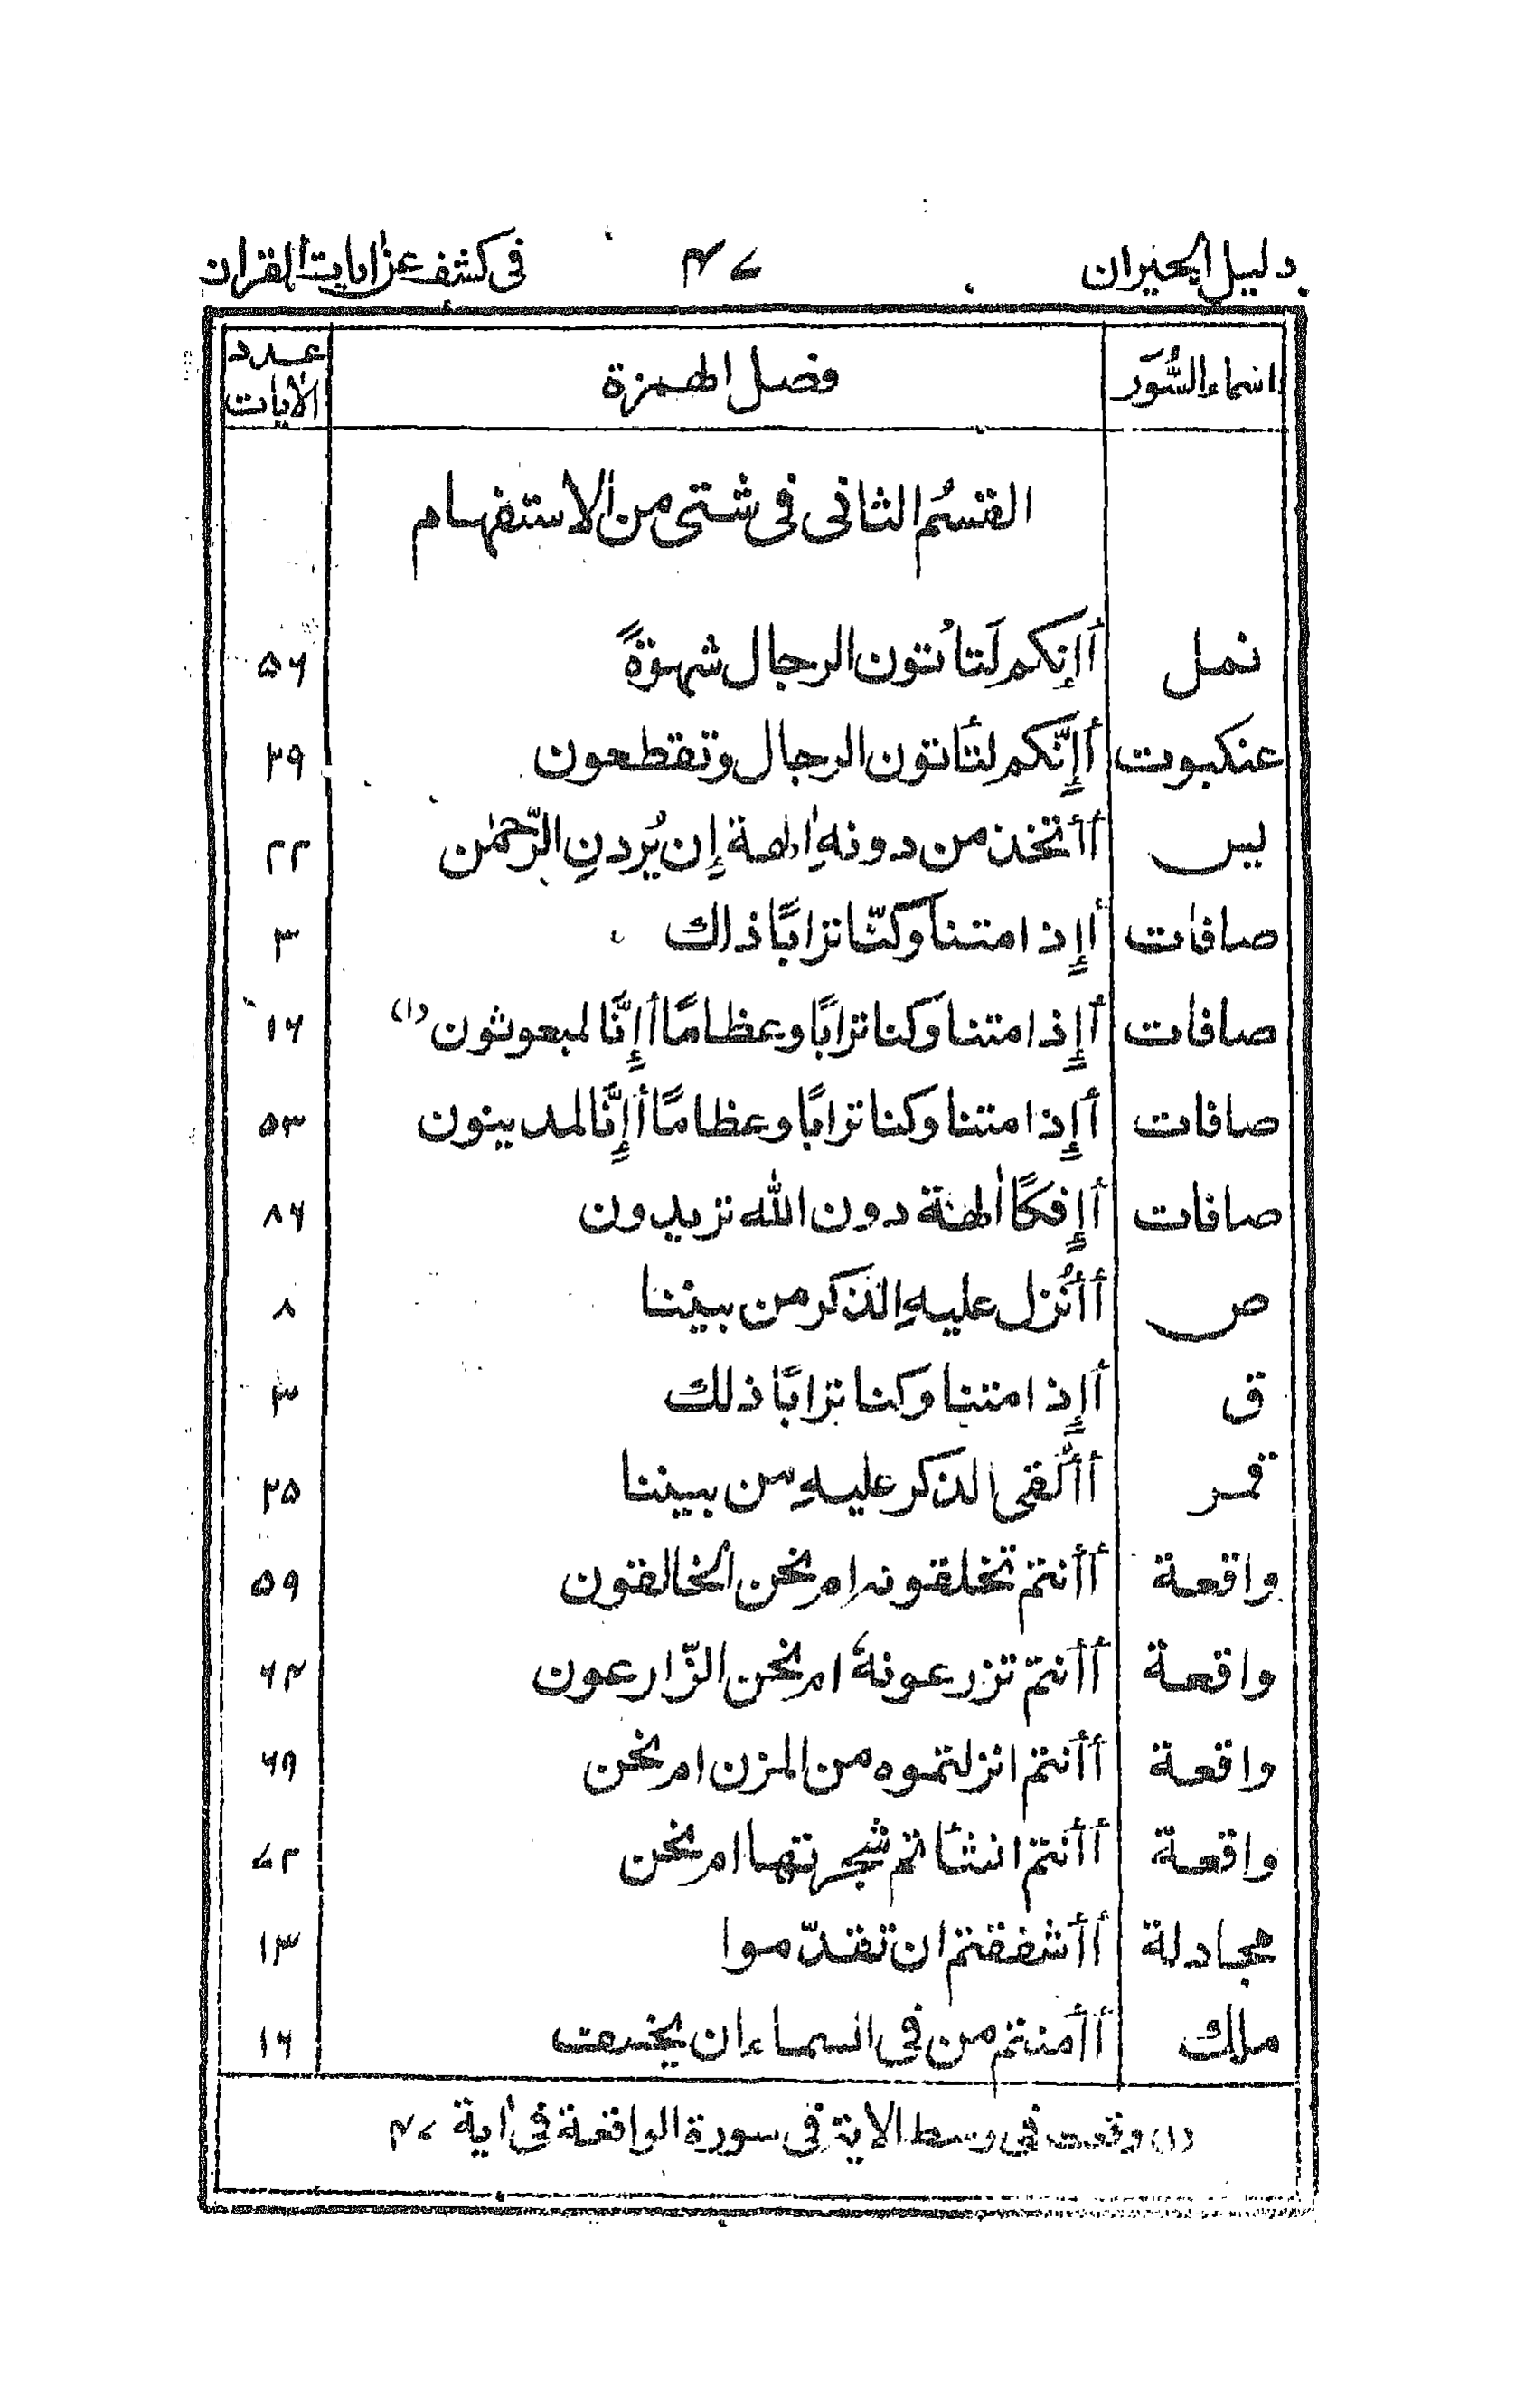 دليل الحيران ۴۷ فى كشف عن اٰيات القران
اسماء السُّوَر فصل الهمزة عدد الاٰيات
القسمُ الثانى فى شتى من الاستفهام
نمل أاإنكم لَتأتون الرجال شهوةً ۵۶
عنكبوت أإِنَّكم لتأتون الرجال وتقطعون ۲۹
يس أأتخذ من دونهِ اٰلهة إِن يُردنِ الرّحمٰن ۲۲
صافات أإِذا متنا وكنّا ترابًا ذلك ۳
صافات أإِذا متنا وكنا ترابًا وعظامًا أإِنَّا لمبعوثون (۱) ۱۶
صافات أإِذا متنا وكنا ترابًا وعظامًا أإِنَّا لمدينون ۵۳
صافات أإِفكًا اٰلهة دون الله تريدون ۸۶
ص أأُنزل عليهِ الذكر من بيننا ۸
ق أإِذا متنا وكنا ترابًا ذلك ۳
قمر أأُلقى الذكر عليهِ من بيننا ۲۵
واقعة أأنتم تخلقونه ام نحن الخالقون ۵۹
واقعة أأنتم تزرعونهُ ام نحن الزّارعون ۶۴
واقعة أأنتم انزلتموه من المزن ام نحن ۶۹
واقعة أأنتم انشأتم شجرتها ام نحن ۷۲
مجادلة أأشفقتم ان تقدّموا ۱۳
ملك أأمنتم من فى السماء ان يخسف ۱۶
(۱) وقعت فى وسط الاية فى سورة الواقعة فى اٰية ۴۷